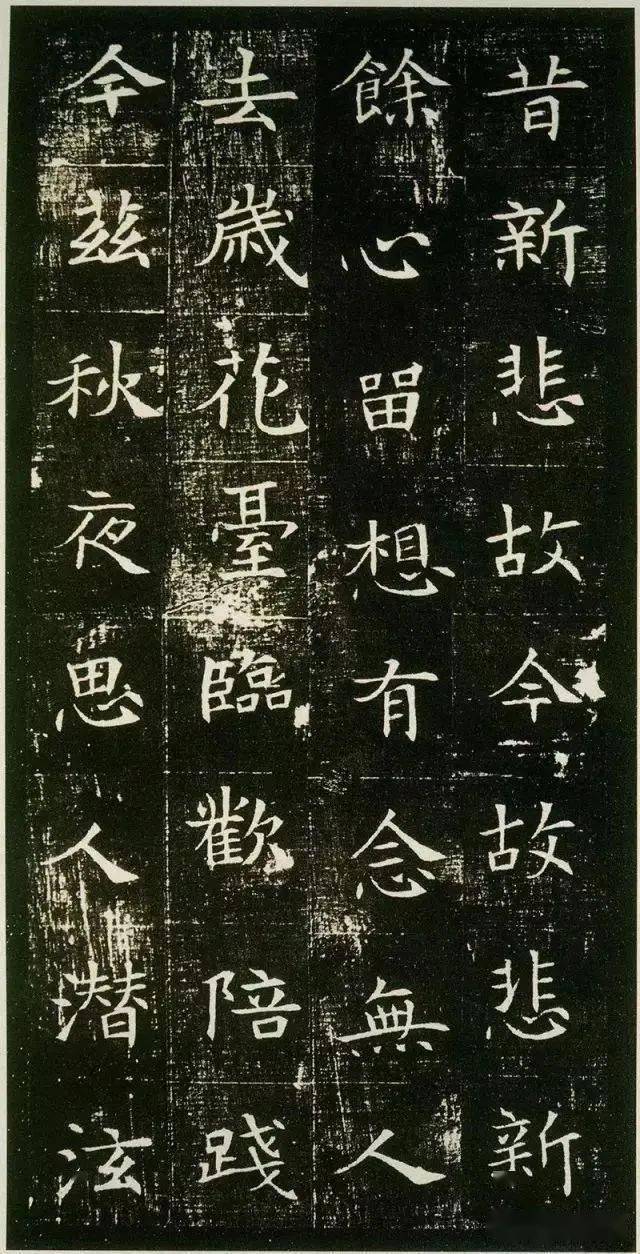 昔新悲故今故悲新
餘心留想有念無人
去歲花臺臨歡陪踐
今茲秋夜思人潛泫